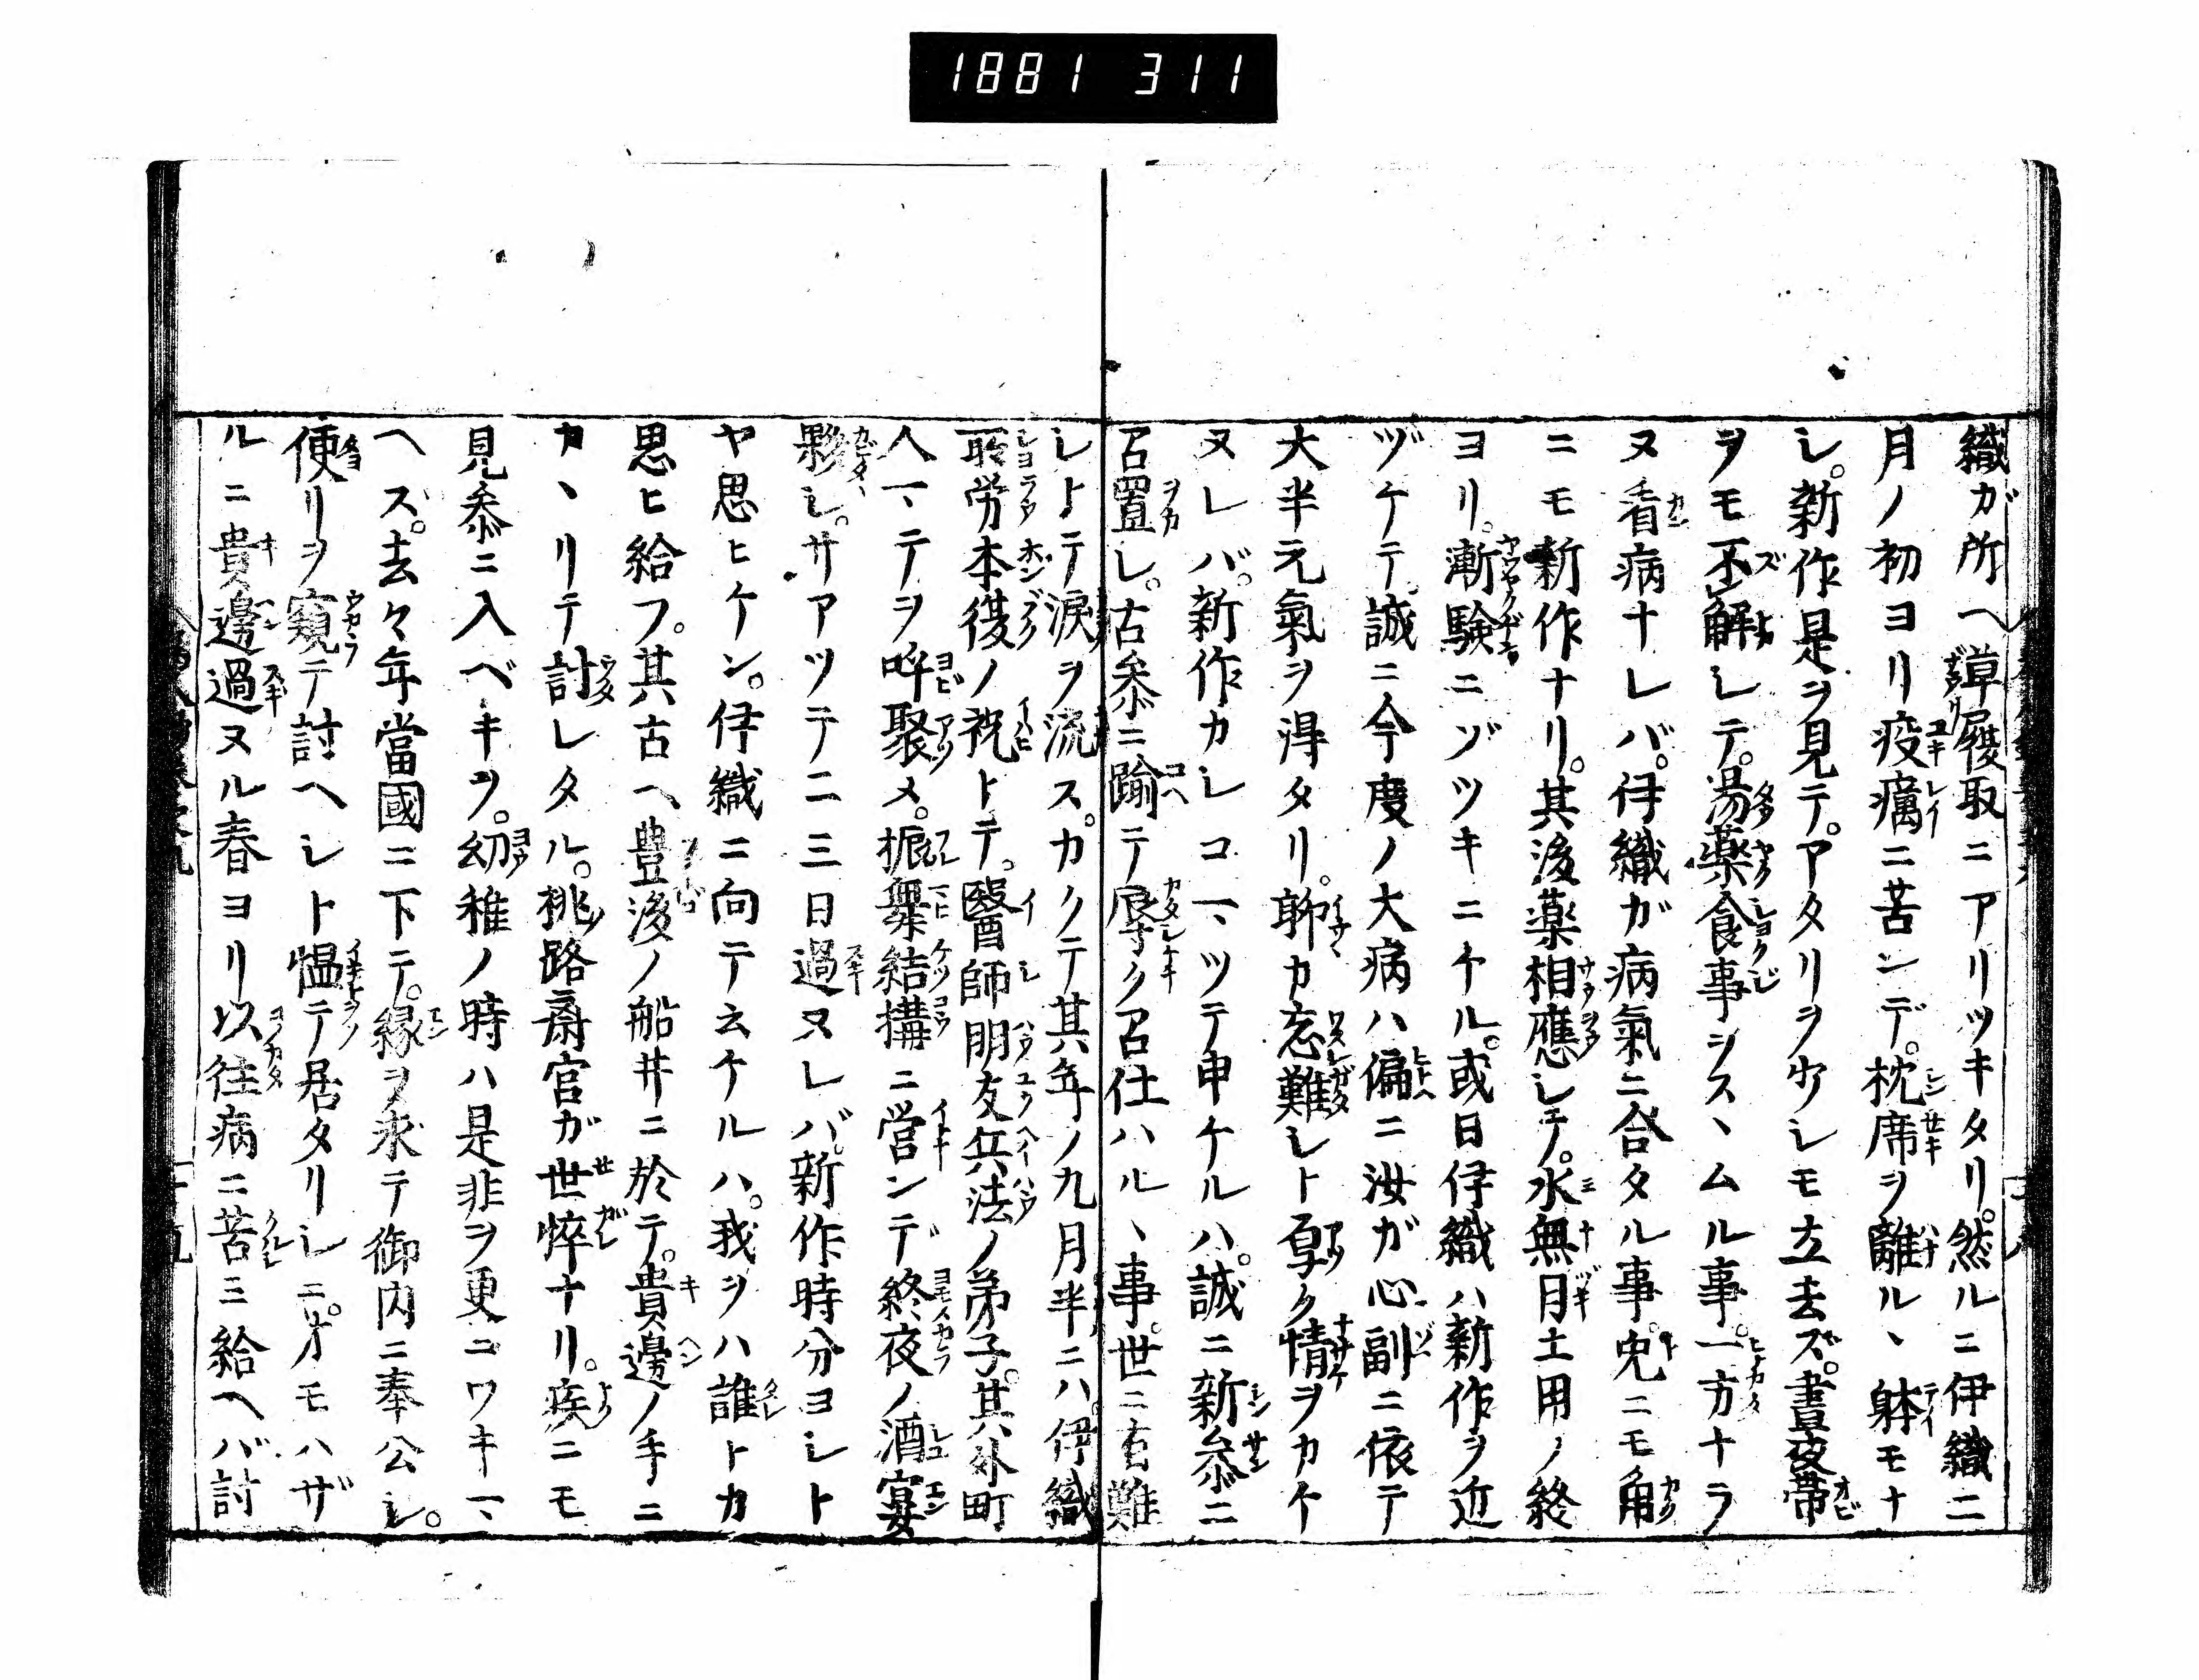 1881 311
織ガ所ヘ草履取ニアリツキタリ。然ルニ伊織ニ
月ノ初ヨリ疫癘ニ苦ンデ。枕席ヲ離ルヽ躰モナ
シ。新作是ヲ見テ。アタリヲ少シモ立去ズ。晝夜帯
ヲモ不解シテ。湯薬食事ヲスヽムル事。一方ナラ
ヌ看病ナレバ。伊織ガ病氣ニ合タル事。兎ニモ角
ニモ新作ナリ。其後薬相應シテ。水無月土用ノ終
ヨリ。漸験ニヅツキニケル。或日伊織ハ新作ヲ近
ヅケテ。誠ニ今度ノ大病ハ偏ニ汝ガ心副ニ依テ
大半元氣ヲ得タリ。聊カ忘難シト厚ク情ヲカケ
ヌレバ。新作カシコマツテ申ケルハ。誠ニ新参ニ
召置シ。古参ニ踰テ辱ク召仕ハルヽ事。世ニ有難
シトテ涙ヲ流ス。カクテ其年ノ九月半ニハ。伊織
所労本復ノ祝トテ。醫師朋友兵法ノ弟子。其外町
人マテヲ呼聚メ。振舞結構ニ営ンデ終夜ノ酒宴
夥シ。サアツテ二三日過ヌレバ。新作時分ヨシト
ヤ思ヒケン。伊織ニ向テ云ケルハ。我ヲハ誰トカ
思ヒ給フ。其古ヘ豊後ノ船井ニ於テ。貴邊ノ手ニ
カヽリテ討レタル。桃路斎官ガ世悴ナリ。疾ニモ
見参ニ入ベキヲ。幼稚ノ時ハ是非ヲ更ニワキマ
ヘズ。去々年當國ニ下テ。縁ヲ求テ御内ニ奉公シ。
便リヲ窺テ討ヘシト慍テ居タリシニ。オモハザ
ルニ貴邊過ヌル春ヨリ以往病ニ苦ミ給ヘバ討